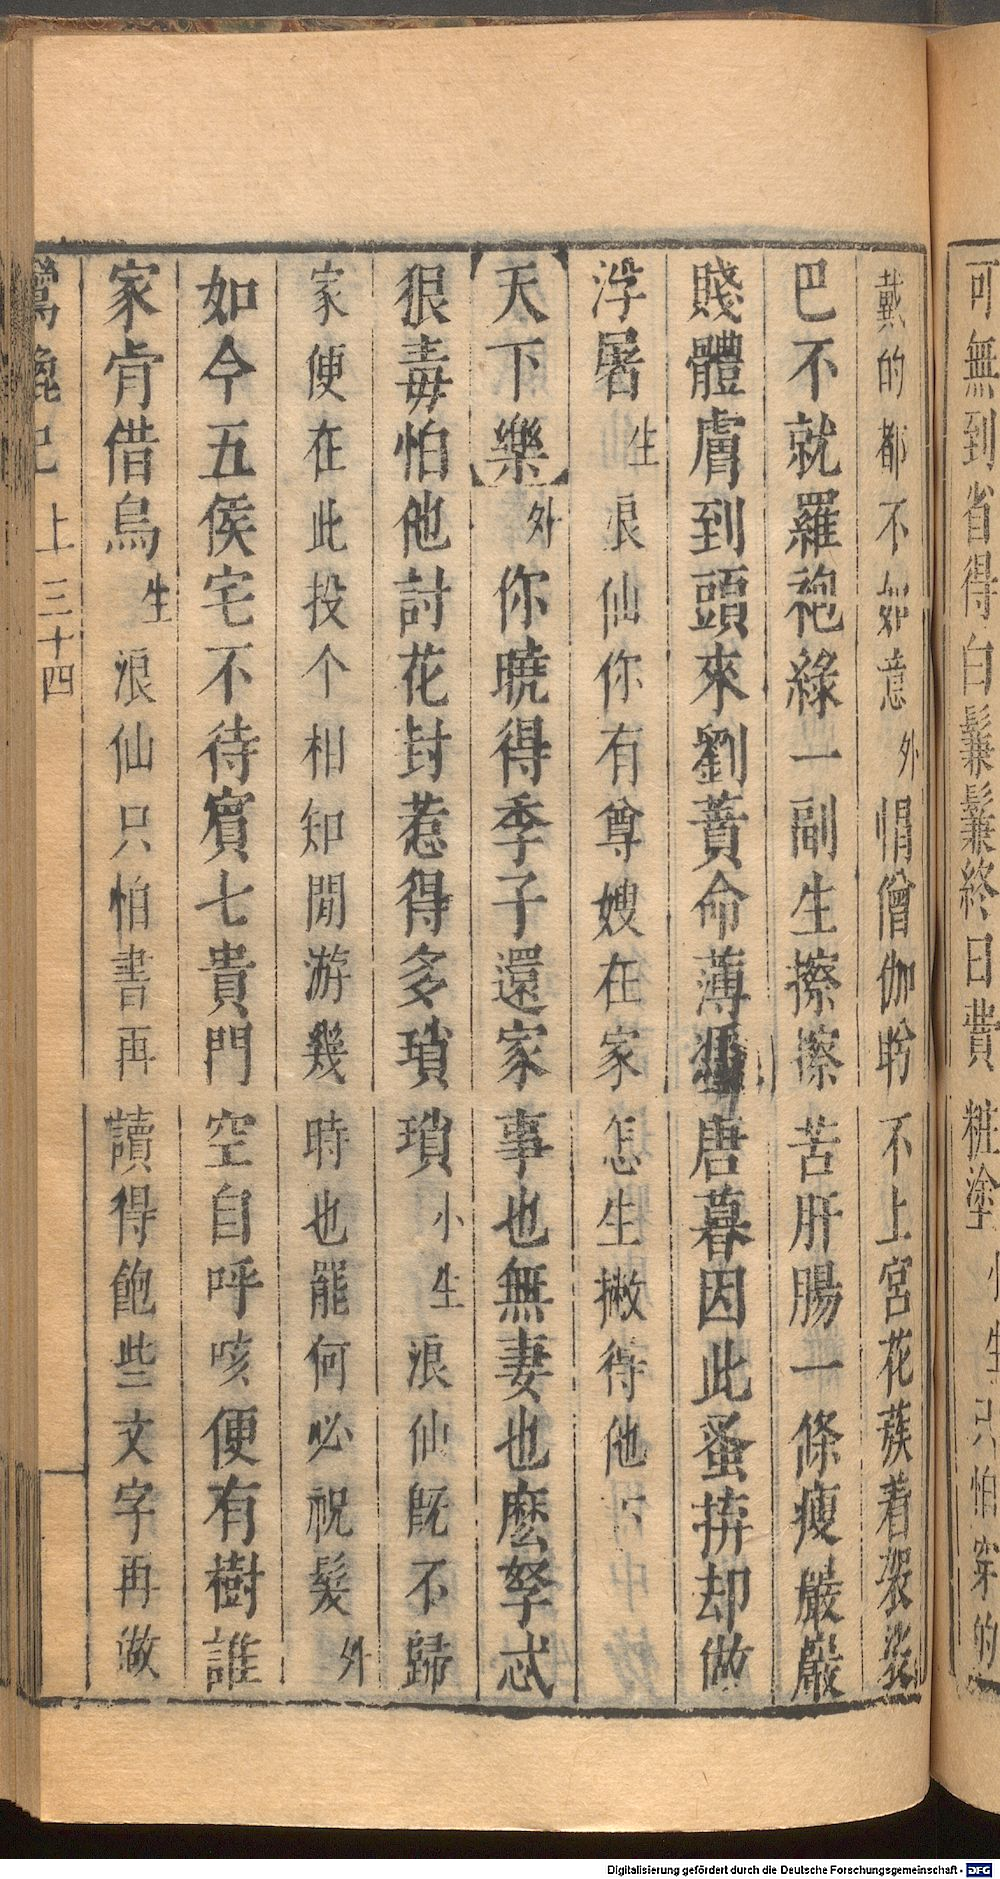 可無到省得白鬚鬢終日費粧塗小生只怕穿的
戴的都不如意外惧僧伽盼不上宮花蔟着袈裟
巴不就羅袍綠一副生擦擦苦肝腸一條瘦巖巖
賤體膚到頭來劉蕡命薄馮唐暮因此蚤拚却做
浮屠生浪仙你有尊嫂在家怎生撇得他
天下樂外你曉得季子還家事也無妻也麽孥忒
狠毒怕他討花封惹得多瑣瑣小生浪仙旣不歸
家便在此投个相知閒游幾時也罷何必祝髮外
如今五侯宅不待賓七貴門空自呼咳便有樹誰
家肯借烏生浪仙只怕書再讀得飽些文字再做
鴛鴦記 上 三十四
Digitalisierung gefördert durch die Deutsche Forschungsgemeinschaft - DFG